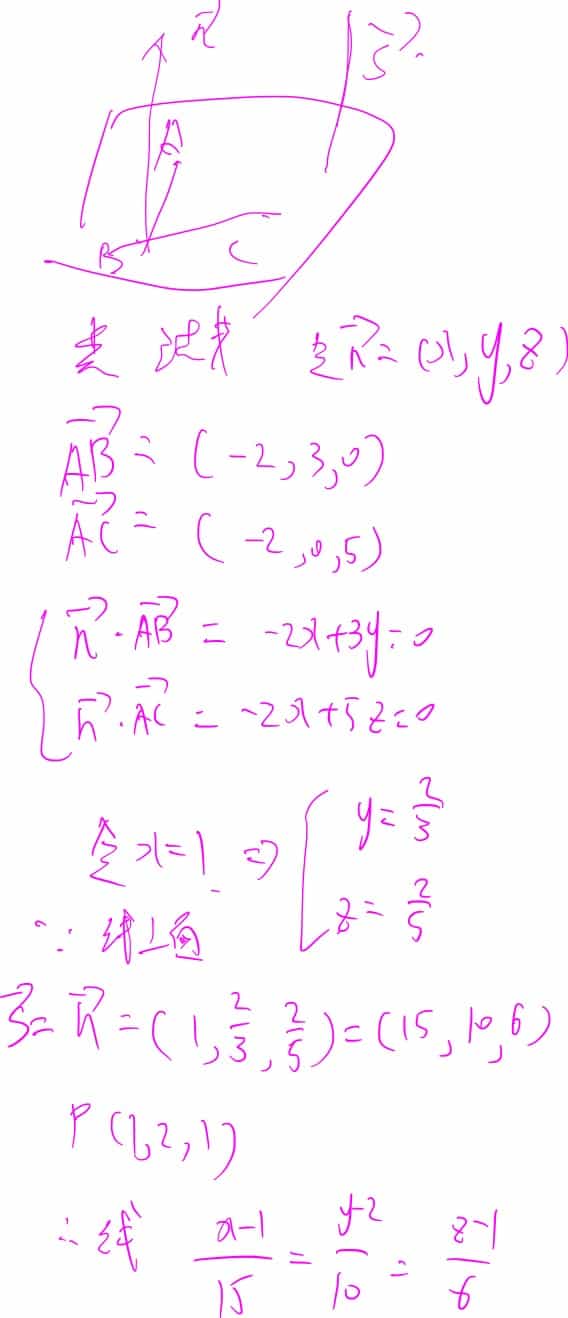 n⃗ S⃗?
A
B C
类 过找 令n⃗=(x,y,z)
AB⃗ = (-2,3,0)
AC⃗ = (-2,0,5)
n⃗·AB⃗ = -2x+3y=0
n⃗·AC⃗ = -2x+5z=0
令x=1 ⇒ { y=2/3
z=2/5
∵ 线⊥面
S⃗=n⃗=(1,2/3,2/5)=(15,10,6)
P(1,2,1)
∴线 x-1/15 = y-2/10 = z-1/6